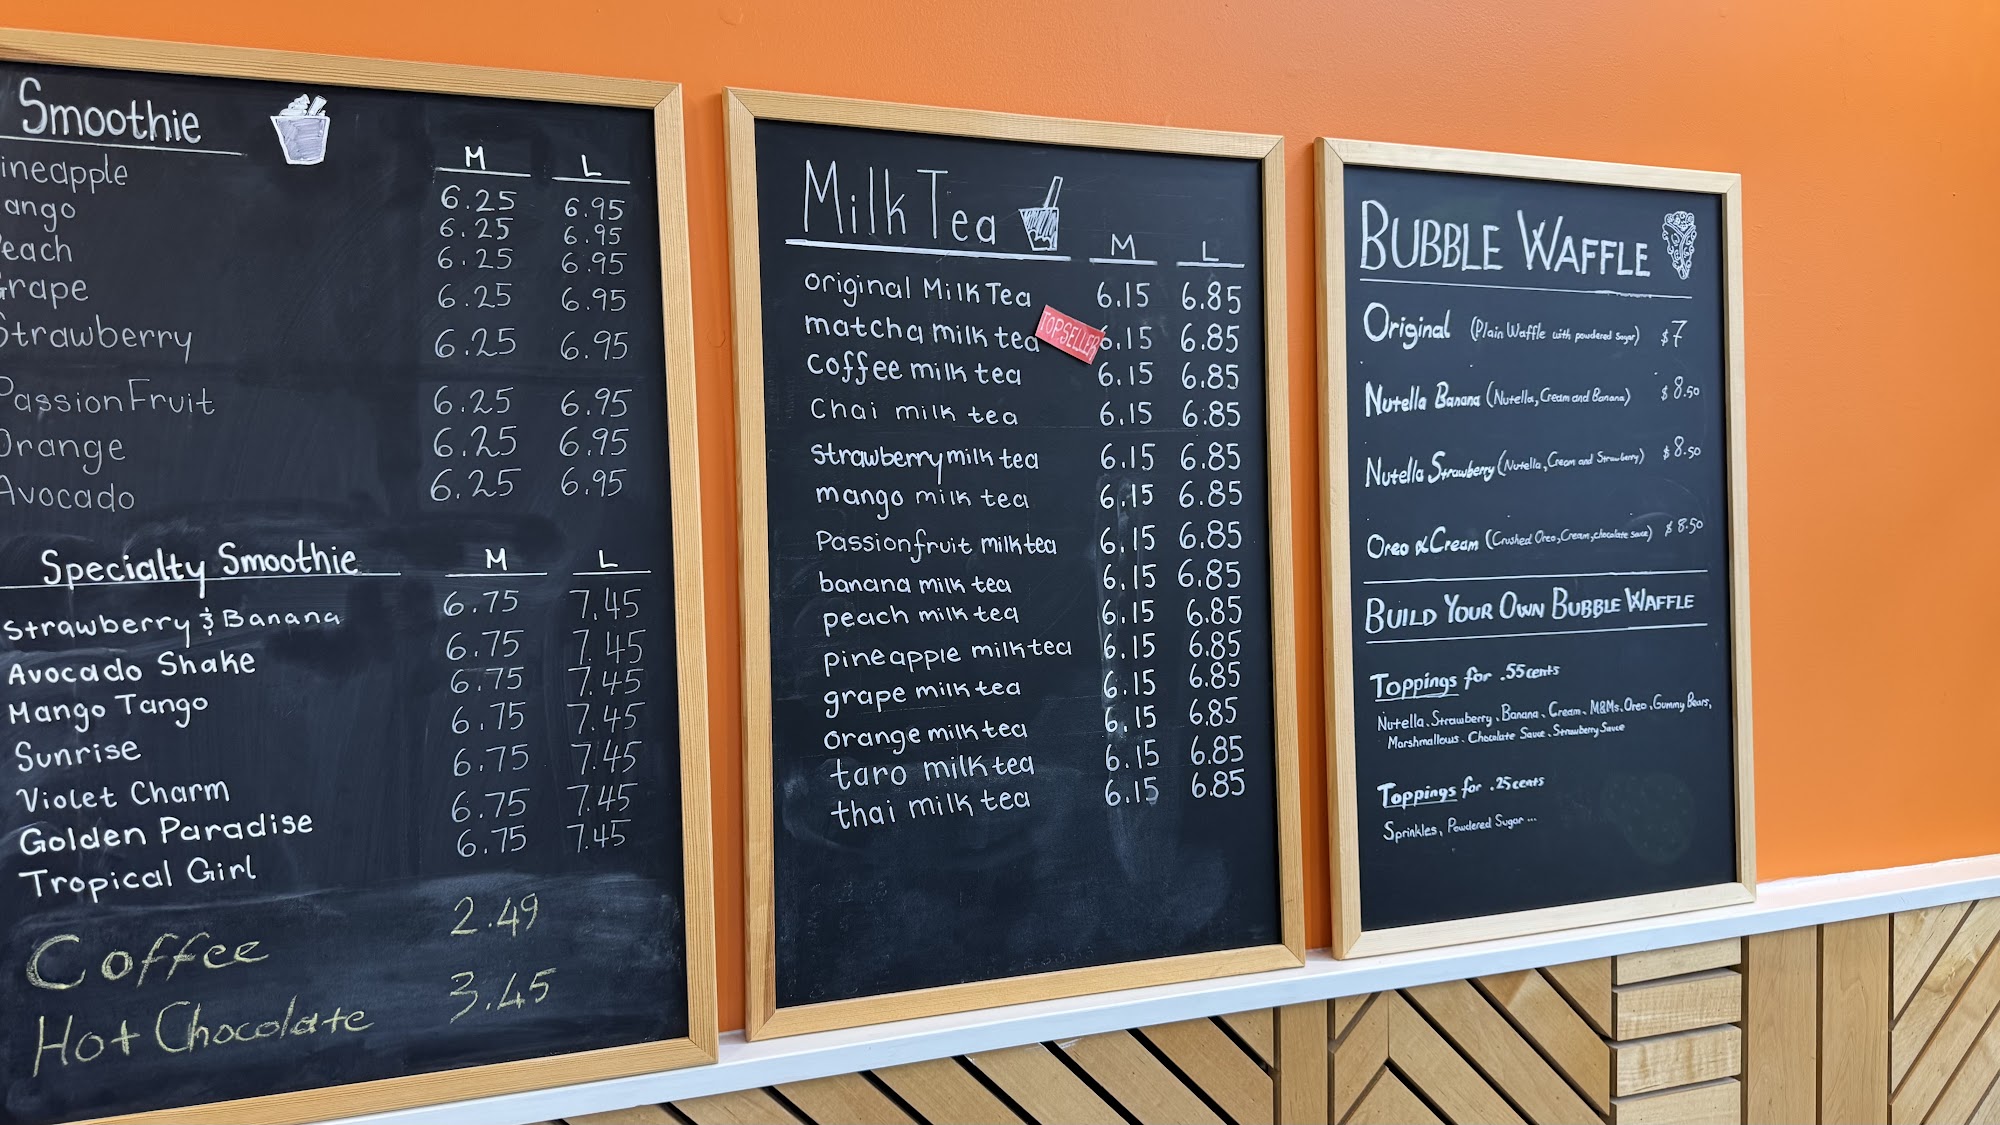 Smoothie
M L
ineapple 6.25 6.95
ango 6.25 6.95
each 6.25 6.95
Grape 6.25 6.95
Strawberry 6.25 6.95
PassionFruit 6.25 6.95
Orange 6.25 6.95
Avocado 6.25 6.95
Specialty Smoothie M L
Strawberry & Banana 6.75 7.45
Avocado Shake 6.75 7.45
Mango Tango 6.75 7.45
Sunrise 6.75 7.45
Violet Charm 6.75 7.45
Golden Paradise 6.75 7.45
Tropical Girl 6.75 7.45
Coffee 2.49
Hot Chocolate 3.45
Milk Tea M L
original Milk Tea 6.15 6.85
matcha milk tea TOPSELLER 6.15 6.85
Coffee milk tea 6.15 6.85
Chai milk tea 6.15 6.85
strawberry milk tea 6.15 6.85
mango milk tea 6.15 6.85
Passionfruit milk tea 6.15 6.85
banana milk tea 6.15 6.85
peach milk tea 6.15 6.85
pineapple milk tea 6.15 6.85
grape milk tea 6.15 6.85
orange milk tea 6.15 6.85
taro milk tea 6.15 6.85
thai milk tea 6.15 6.85
BUBBLE WAFFLE
Original (Plain Waffle with powdered sugar) $7
Nutella Banana (Nutella, Cream and Banana) $8.50
Nutella Strawberry (Nutella, Cream and Strawberry) $8.50
Oreo & Cream (Crushed Oreo, Cream, chocolate sauce) $8.50
BUILD YOUR OWN BUBBLE WAFFLE
Toppings for .55cents
Nutella, Strawberry, Banana, Cream, M&Ms, Oreo, Gummy Bears,
Marshmallows, Chocolate Sauce, Strawberry Sauce
Toppings for .25cents
Sprinkles, Powdered Sugar ...